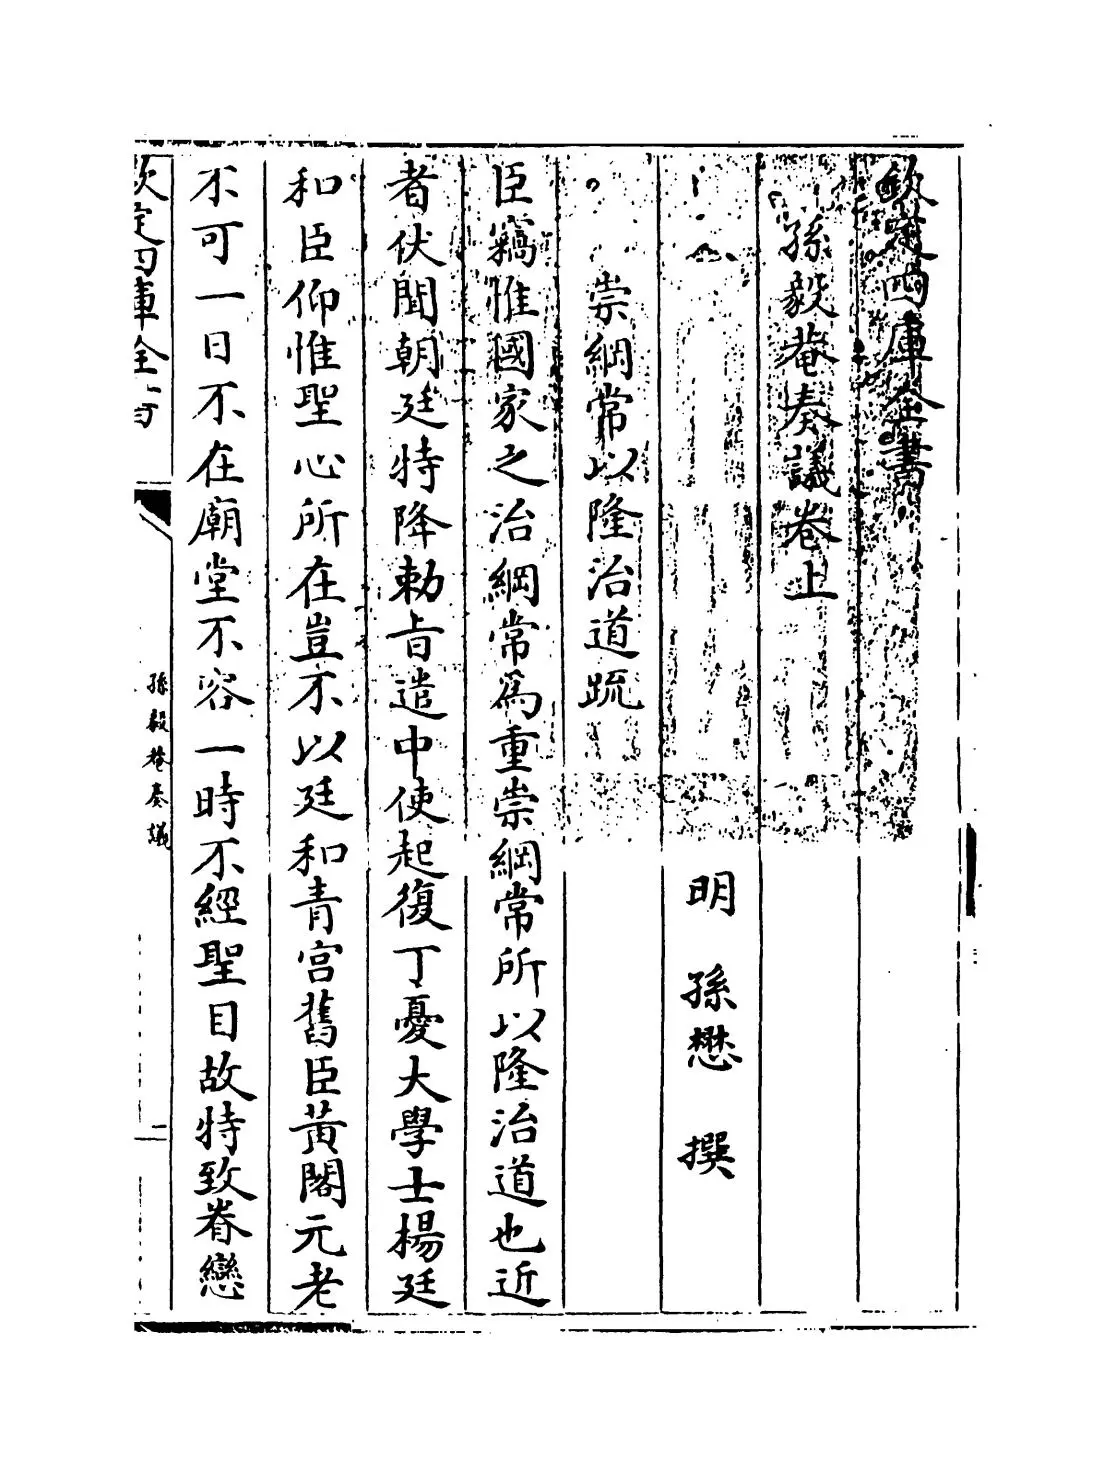 欽定四庫全書
孫毅菴奏議卷上
明 孫懋 撰
崇綱常以隆治道疏
臣竊惟國家之治綱常為重崇綱常所以隆治道也近
者伏聞朝廷特降勅旨遣中使起復丁憂大學士楊廷
和臣仰惟聖心所在豈不以廷和青宮舊臣黃閣元老
不可一日不在廟堂不容一時不經聖目故特致眷戀
欽定四庫全書
孫毅菴奏議